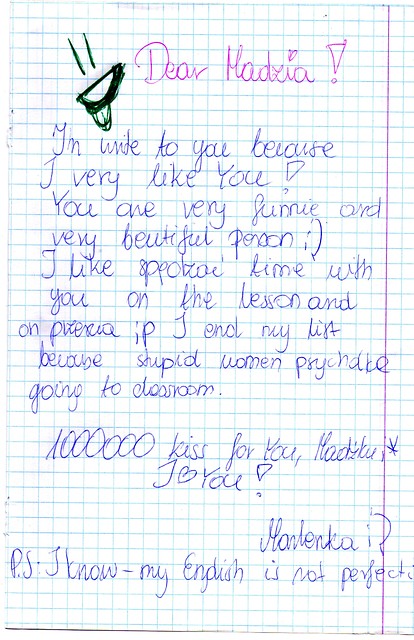 Dear Madzia!
I'm write to you because
I very like You!
You are very funnie and
very beutiful person ;)
I like spędzać time with
you on the lesson and
on przerwa ;p I end my list
because stupid women psycholke
going to classroom.
1000000 kiss for You, Madziu ;*
I ♡ You!
Marlenka ;?
P.S: I know - my English is not perfect ;